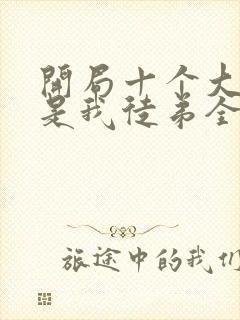 開局十个大
是我徒弟全
旅途中的我们